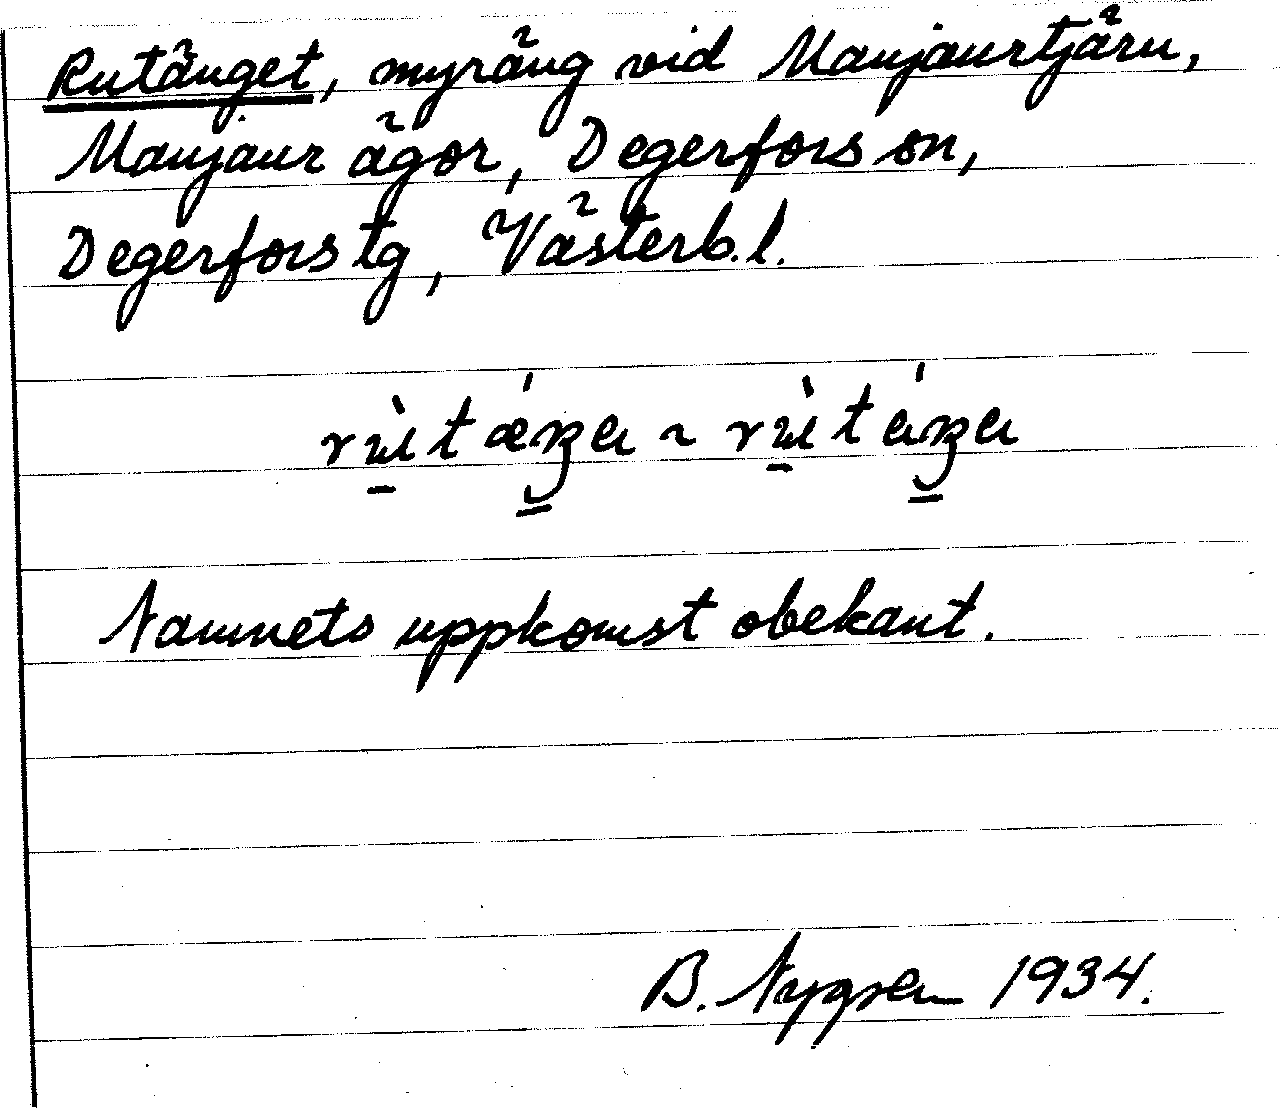 Rutänget, myräng vid Manjaurtjärn,
Manjaur ägor, Degerfors sn,
Degerfors tg, Västerb. l.
Namnets uppkomst obekant.
B. Nygren 1934.